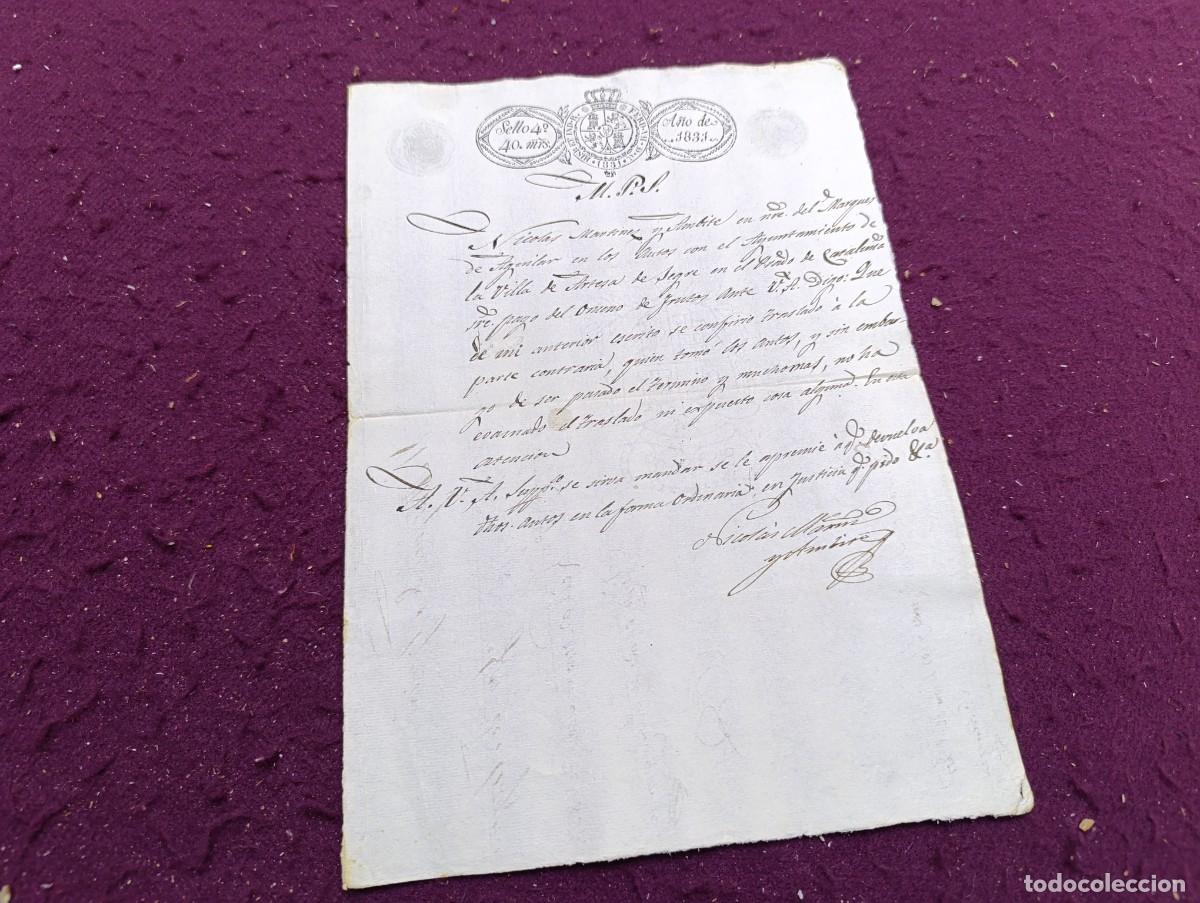 Sello 4º
40. mrs.
HISP. ET IND. R.
FERD. VII. D. G.
1831
Año de
1831.
M. P. S.
Nicolas Martinez y Ambite en nre. del Marques
de Aguilar en los Autos con el Ayuntamiento de
la Villa de Artesa de Segre en el Prado de Cataluña
sre. pago del Onceno de frutos Ante V. A. Digo: Que
de mi anterior escrito se confirio traslado à la
parte contraria, quien tomó los autos, y sin embar
go de ser pasado el termino y muchomas, no ha
evacuado el traslado ni expuesto cosa alguna. En esta
atencion
A. V. A. Suppco. se sirva mandar se le apremie à q. devuelva
dhos. autos en la forma Ordinaria, en Justicia q. pido &a.
Nicolas Martinez
y Ambite
todocoleccion